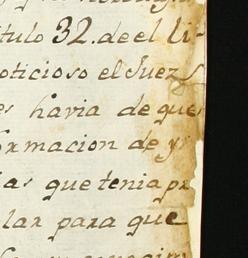 tulo 32. de el li-
oticioso el Juez
es havia de que
ormacion de y
as que tenia pr
lar para que